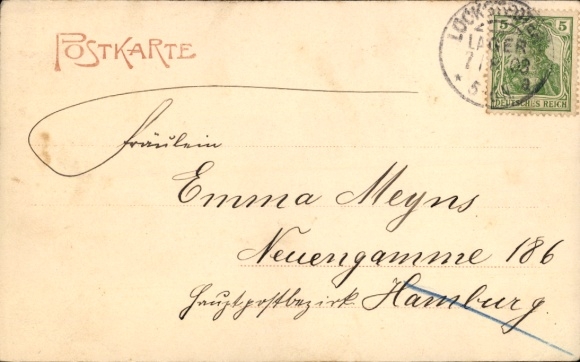 POSTKARTE
LOCKSTEDTER
LAGER
5
5
DEUTSCHES REICH
Fräulein
Emma Meyns
Neuengamme 186
Hauptpostbezirk Hamburg.